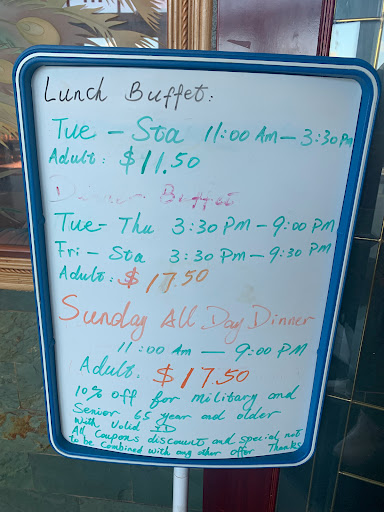 Lunch Buffet:
Tue - Sta 11:00 Am - 3:30 Pm
Adult: $11.50
Dinner Buffet
Tue- Thu 3:30 Pm - 9:00 PM
Fri - Sta 3:30 Pm - 9:30 PM
Adult: $17.50
Sunday All Day Dinner
11:00 Am - 9:00 PM
Adult: $17.50
10% off for military and
Senior 65 year and older
With Valid ID
All Coupons discounts and special not
to be Combined with any other offer Thanks